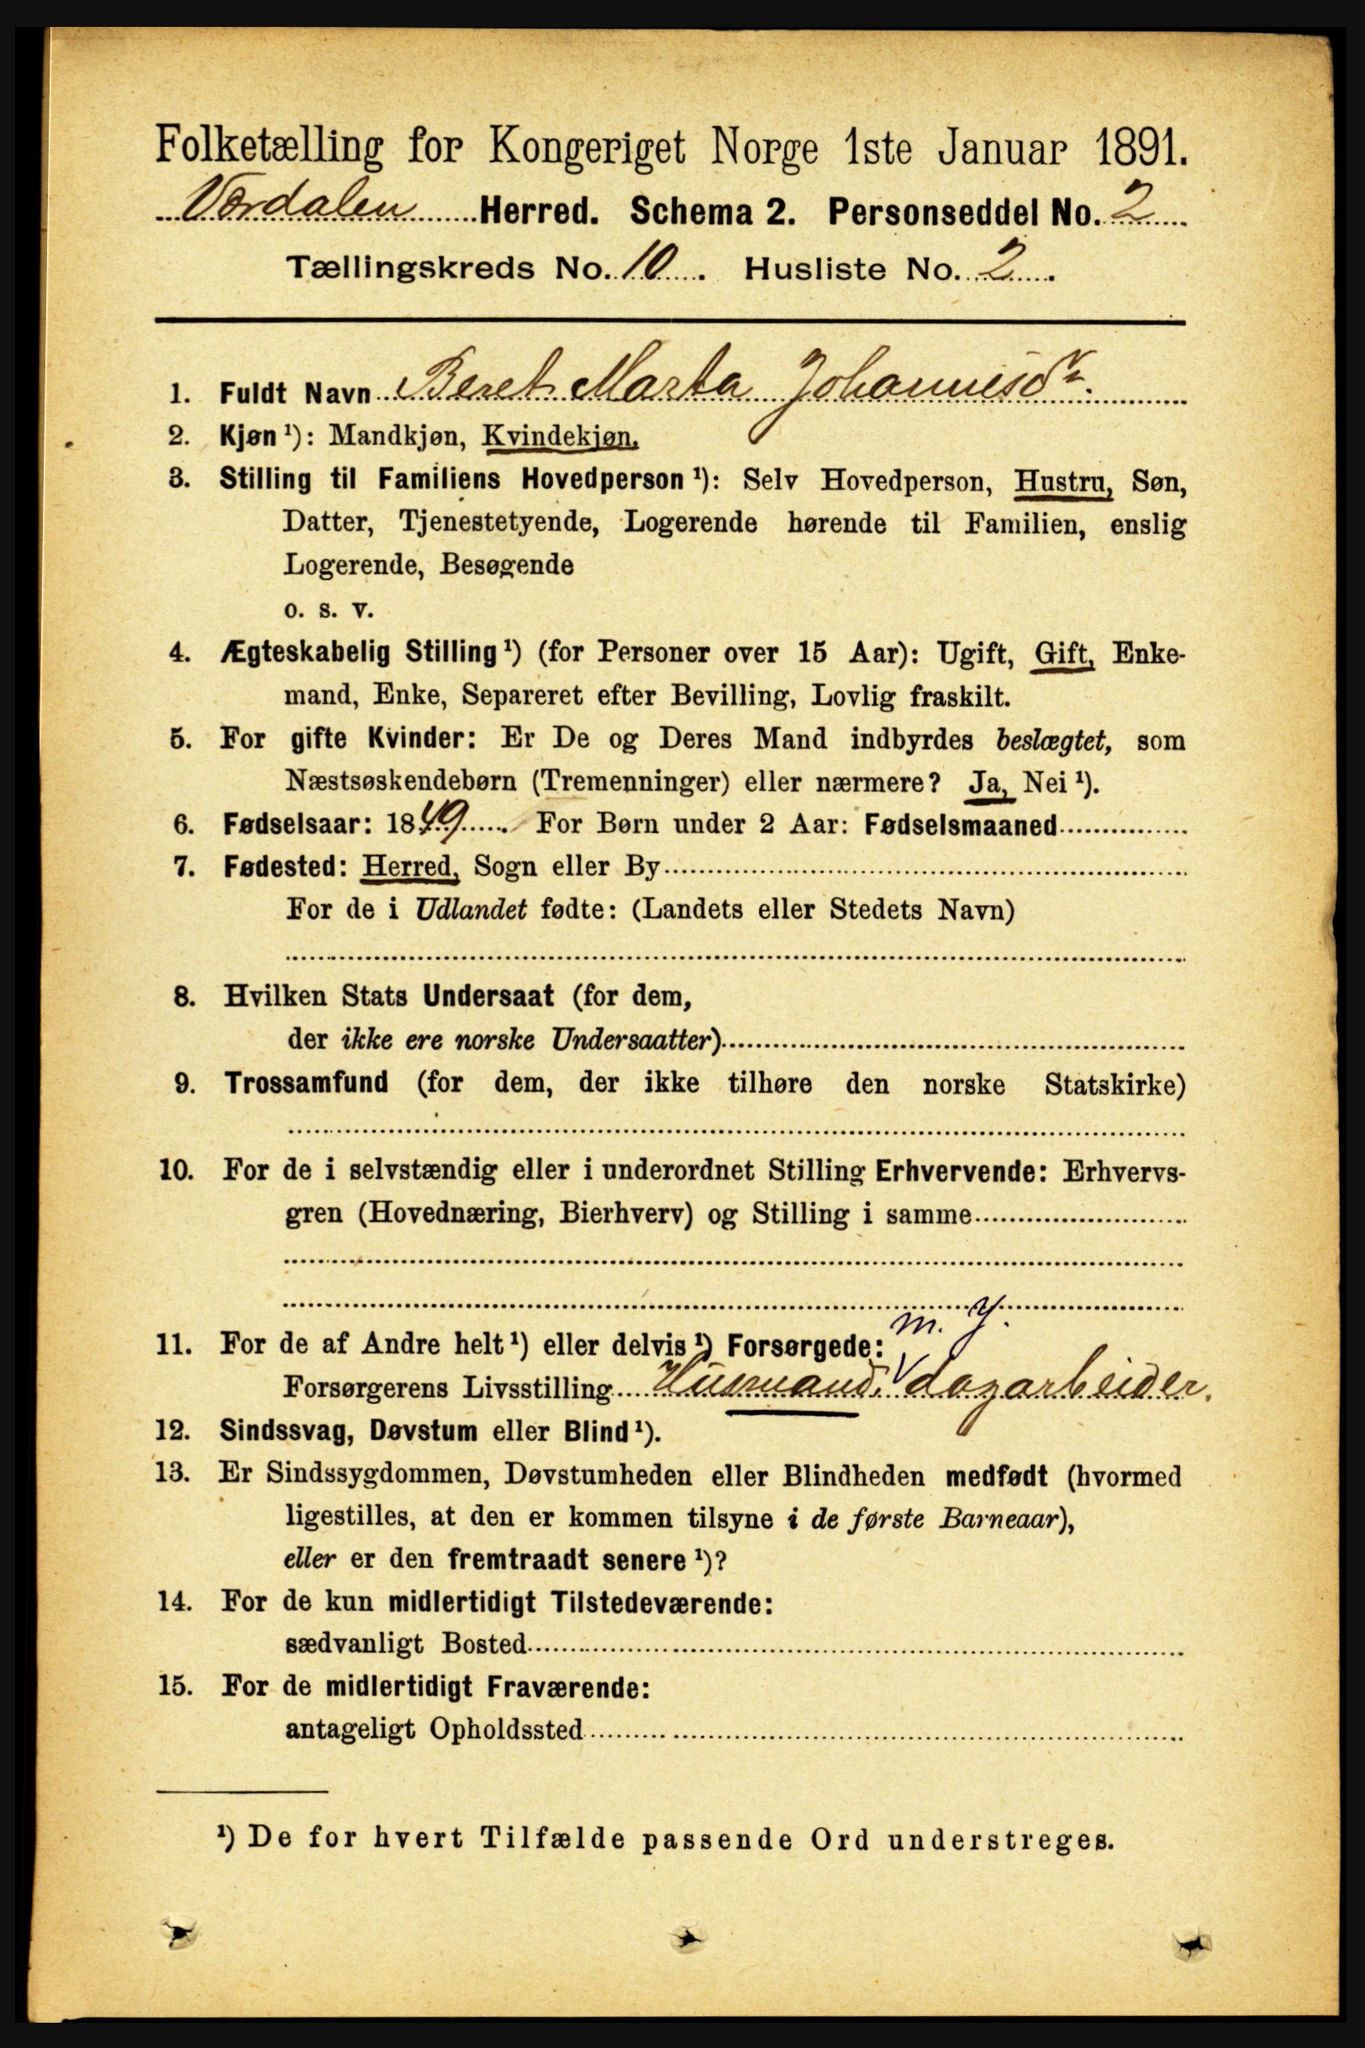 Folketælling for Kongeriget Norge 1ste Januar 1891.
Værdalen Herred. Schema 2. Personseddel No. 2
Tællingskreds No. 10. Husliste No. 2.
1. Fuldt Navn Beret Marta Johannesdr.
2. Kjøn ¹): Mandkjøn, Kvindekjøn.
3. Stilling til Familiens Hovedperson ¹): Selv Hovedperson, Hustru, Søn,
Datter, Tjenestetyende, Logerende hørende til Familien, enslig
Logerende, Besøgende
o. s. v.
4. Ægteskabelig Stilling ¹) (for Personer over 15 Aar): Ugift, Gift, Enke-
mand, Enke, Separeret efter Bevilling, Lovlig fraskilt.
5. For gifte Kvinder: Er De og Deres Mand indbyrdes beslægtet, som
Næstsøskendebørn (Tremenninger) eller nærmere? Ja, Nei ¹).
6. Fødselsaar: 1849. For Børn under 2 Aar: Fødselsmaaned
7. Fødested: Herred, Sogn eller By
For de i Udlandet fødte: (Landets eller Stedets Navn)
8. Hvilken Stats Undersaat (for dem,
der ikke ere norske Undersaatter)
9. Trossamfund (for dem, der ikke tilhøre den norske Statskirke)
10. For de i selvstændig eller i underordnet Stilling Erhvervende: Erhvervs-
gren (Hovednæring, Bierhverv) og Stilling i samme
m. J.
11. For de af Andre helt ¹) eller delvis ¹) Forsørgede:
Forsørgerens Livsstilling Husmand, dagarbeider.
12. Sindssvag, Døvstum eller Blind ¹).
13. Er Sindssygdommen, Døvstumheden eller Blindheden medfødt (hvormed
ligestilles, at den er kommen tilsyne i de første Barneaar),
eller er den fremtraadt senere ¹)?
14. For de kun midlertidigt Tilstedeværende:
sædvanligt Bosted
15. For de midlertidigt Fraværende:
antageligt Opholdssted
¹) De for hvert Tilfælde passende Ord understreges.